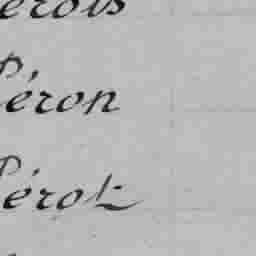 erois
éron
érot